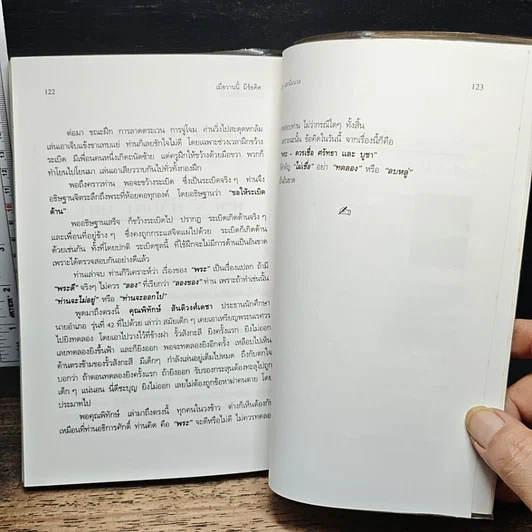 122
เมื่อวานนี้ มีข้อคิด
ต่อมา ขณะฝึก การลาดตระเวน การจู่โจม ท่านวิ่งไปสะดุดหกล้ม
เล่นเอาเจ็บแข้งขาเทบแย่ ท่านก็เลยชักใจไม่ดี โดยเฉพาะช่วงเวลาฝึกขว้าง
ระเบิด มีเพื่อนคนหนึ่งเกิดถนัดซ้าย แต่ครูฝึกให้ขว้างด้วยมือขวา พวกก็
ทำโยนไปโยนมา เล่นเอาเสียวราบกันไปทั่วทั้งกองฝึก
พอถึงคราวท่าน พอจะขว้างระเบิด ซึ่งเป็นระเบิดจริงๆ ท่านจึง
อธิษฐานจิตระลึกถึงพระที่ห้อยคอทุกองค์ โดยอธิษฐานว่า "ขอให้ระเบิด
ด้าน"
พออธิษฐานเสร็จ ก็ขว้างระเบิดไป ปรากฏ ระเบิดเกิดด้านจริงๆ
และเพื่อนที่อยู่ข้างๆ ซึ่งคงถูกกระแสจิตแผ่ไปด้วย ระเบิดก็เกิดด้าน
ด้วยเช่นกัน ทั้งที่โดยปกติ ระเบิดชุดนี้ ที่ใช้ฝึกจะไม่มีการด้านเป็นอันขาด
เพราะได้ตรวจสอบกันอย่างดีแล้ว
ท่านเล่าจบ ท่านก็วิเคราะห์ว่า เรื่องของ "พระ" เป็นเรื่องแปลก ถ้ามี
"พระดี" จริงๆ ไม่ควร "ลอง" ที่เรียกว่า "ลองของ" ท่าน เพราะถ้าทำเช่นนั้น
"ท่านจะไม่อยู่" หรือ "ท่านจะออกไป"
พูดมาถึงตรงนี้ คุณพิทักษ์ สันติวงศ์เดชา ประธานนักศึกษา
นายอำเภอ รุ่นที่ 42 ที่ไปด้วย เล่าว่า สมัยเด็กๆ เคยเอาเหรียญพระนเรศวร
ไปยิงทดลอง โดยเอาไปวางไว้ที่ข้างฝา รั้วสังกะสี ยิงครั้งแรก ยิงไม่ออก
เลยทดลองยิงขึ้นฟ้า และก็ยิงออก พอจะทดลองยิงอีกครั้ง เหลือบไปเห็น
ด้านตรงข้ามของรั้วสังกะสี มีเด็กๆ กำลังเล่นอยู่เต็มไปหมด ถึงกับตกใจ
บอกว่า ถ้าตอนทดลองยิงครั้งแรก ถ้ายิงออก รับรองกระสุนต้องทะลุไปถูก
เด็กๆ แน่นอน นี่ดีชะบุญ ยิงไม่ออก เลยไม่ต้องถูกข้อหาฆ่าคนตาย โดย
ประมาทไป
พอคุณพิทักษ์ เล่ามาถึงตรงนี้ ทุกคนในวงข้าว ต่างก็เห็นต้องกัน
เหมือนที่ท่านอธิการศักดิ์ ท่านคิด คือ "พระ" จะดีหรือไม่ดี ไม่ควรทดลอง
123
ท่าน ไม่ว่ากรณีใดๆ ทั้งสิ้น
ฉะนั้น ข้อคิดในวันนี้ จากเรื่องนี้ก็คือ
"พระ - ควรเชื่อ ศรัทธา และ บูชา"
"ไม่เชื่อ" อย่า "ทดลอง" หรือ "ลบหลู่"